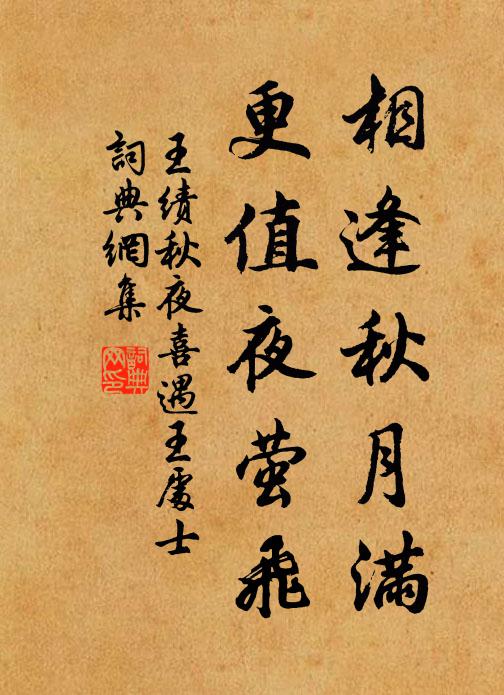 相逢秋月满
更值夜萤飛
王绩秋夜喜遇王處士
詞典網集
詞典網印